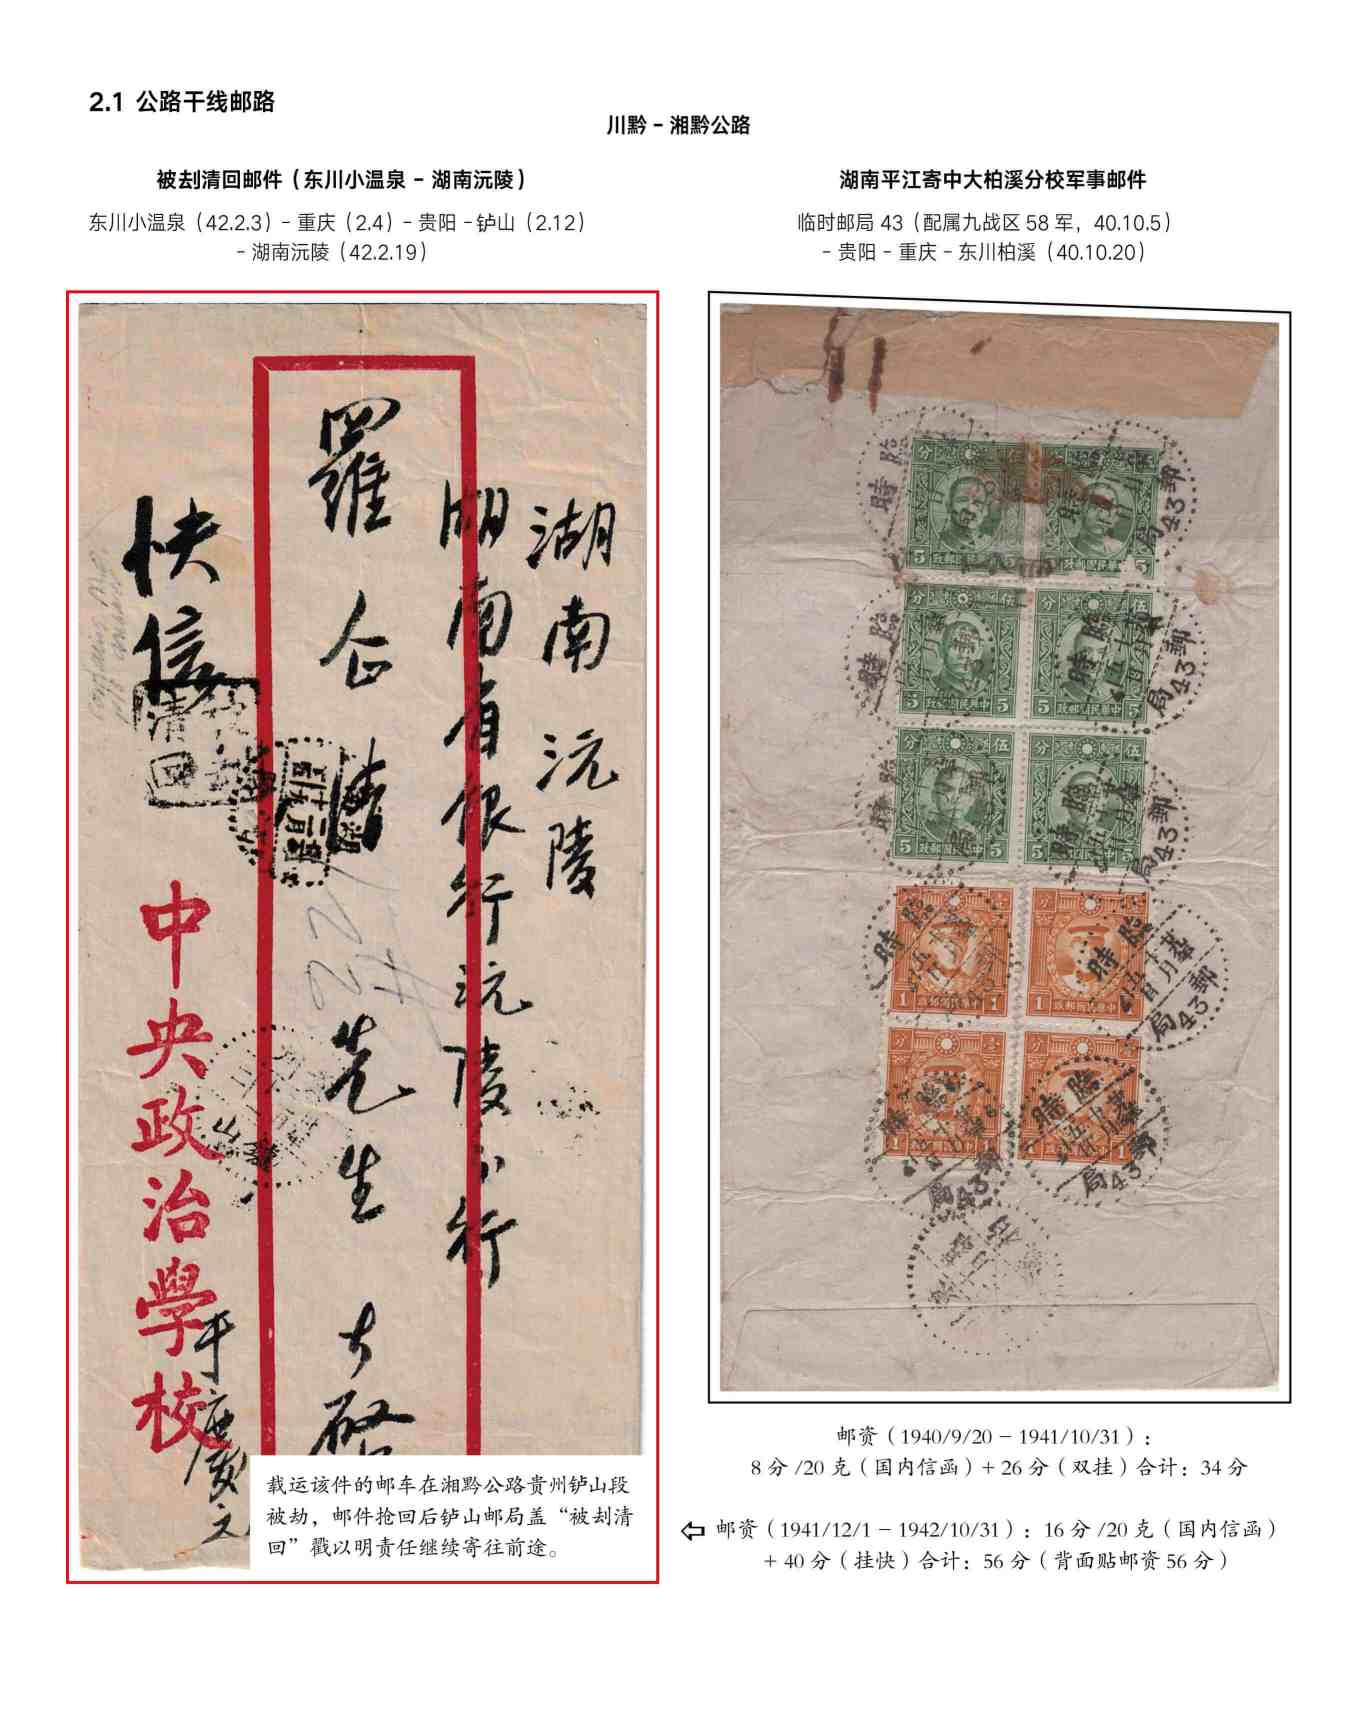 2.1 公路干线邮路
川黔 – 湘黔公路
被刦清回邮件（东川小温泉 – 湖南沅陵）
东川小温泉（42.2.3）– 重庆（2.4）– 贵阳 – 铲山（2.12）
– 湖南沅陵（42.2.19）
湖南平江寄中大柏溪分校军事邮件
临时邮局 43（配属九战区 58 军，40.10.5）
– 贵阳 – 重庆 – 东川柏溪（40.10.20）
湖南沅陵
湖南省银行沅陵分行
快信
清回
中央政治學校
先生
临時郵局43
伍分
5
中華民國郵政
壹分
1
载运该件的邮车在湘黔公路贵州铲山段
被劫，邮件抢回后铲山邮局盖“被刦清
回”戳以明责任继续寄往前途。
邮资（1940/9/20 – 1941/10/31）：
8 分 /20 克（国内信函）+ 26 分（双挂）合计：34 分
邮资（1941/12/1 – 1942/10/31）：16 分 /20 克（国内信函）
+ 40 分（挂快）合计：56 分（背面贴邮资 56 分）